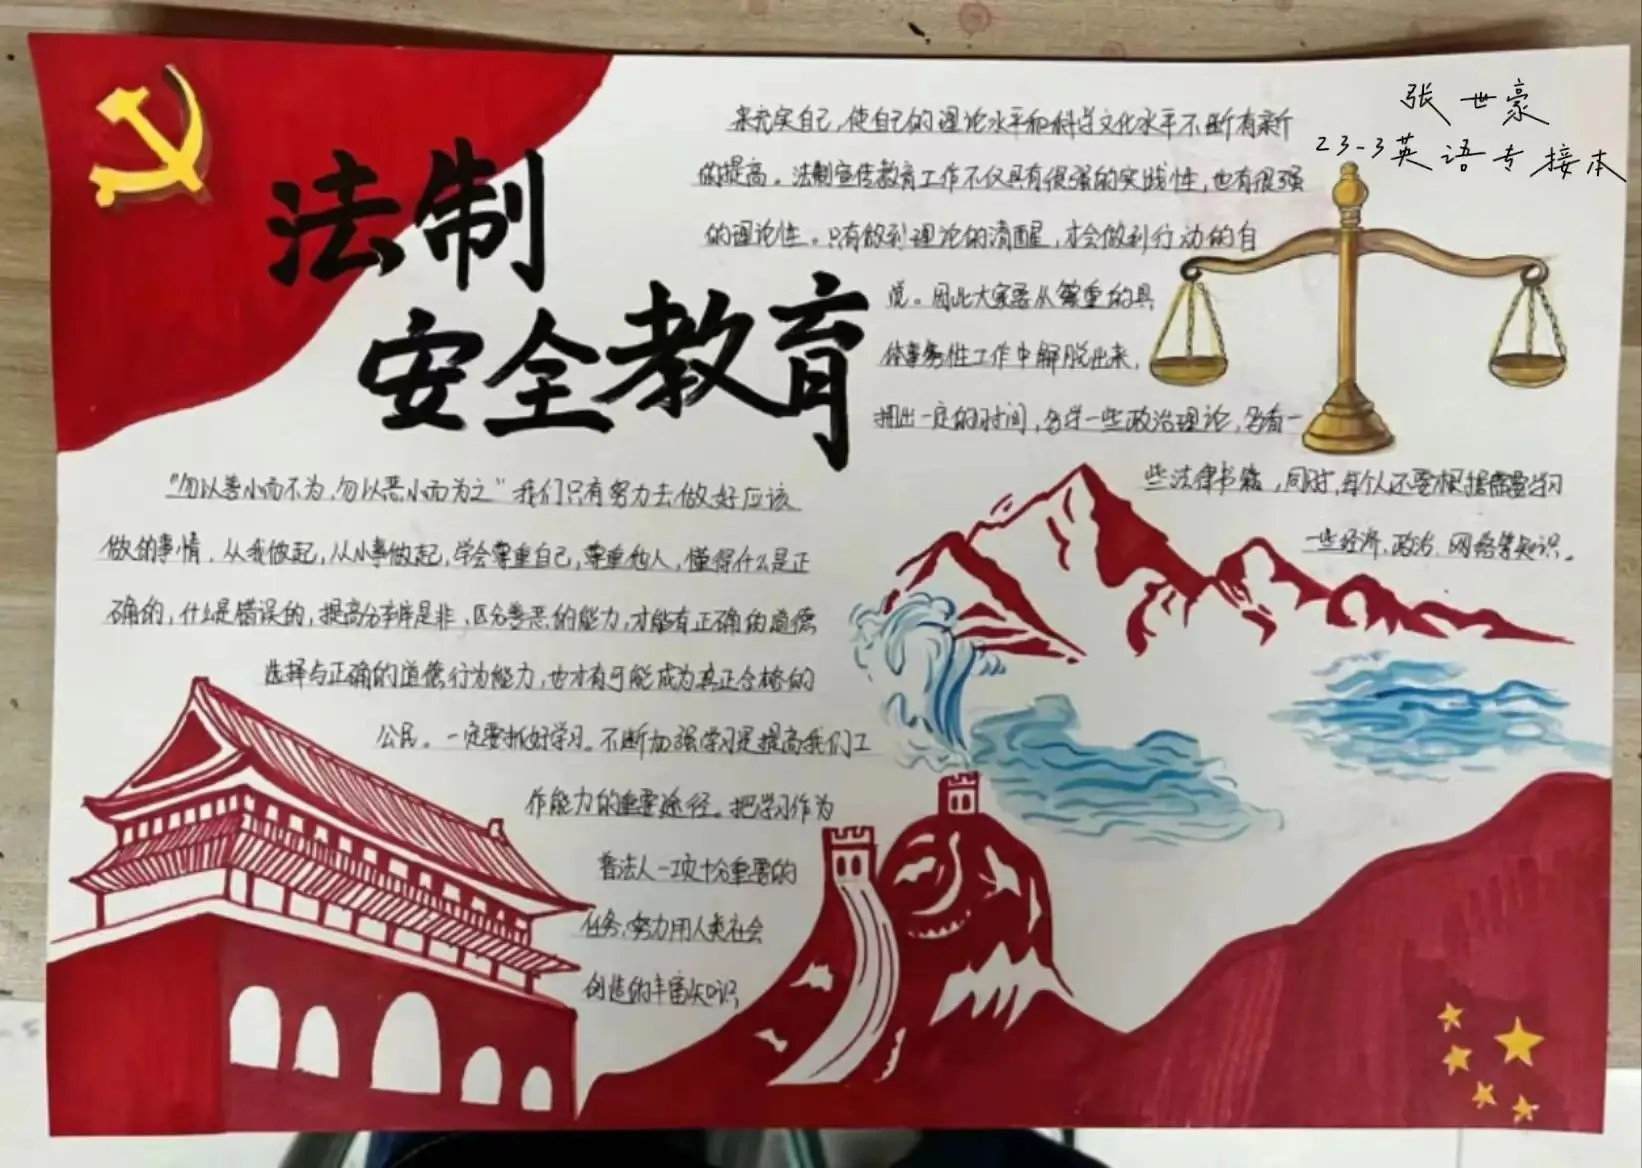 法制
安全教育
张世豪
23-3英语专接本
"勿以善小而不为,勿以恶小而为之"我们只有努力去做好应该
做的事情,从我做起,从小事做起,学会尊重自己,尊重他人,懂得什么是正
确的,什么是错误的,提高分辨是非、区分善恶的能力,才能有正确的道德
选择与正确的道德行为能力,也才有可能成为真正合格的
公民。一定要抓好学习。不断加强学习是提高我们工
作能力的重要途径。把学习作为
普法人一项十分重要的
任务,努力用人类社会
创造的丰富知识
来充实自己,使自己的理论水平和科学文化水平不断有新
的提高。法制宣传教育工作不仅具有很强的实践性,也有很强
的理论性。只有做到理论的清醒,才会做到行动的自
觉。因此大家要从繁重的具
体事务性工作中解脱出来,
拥出一定的时间,多学一些政治理论,多看一
些法律书籍,同时,每个人还要根据需要学习
一些经济、政治、网络等知识。